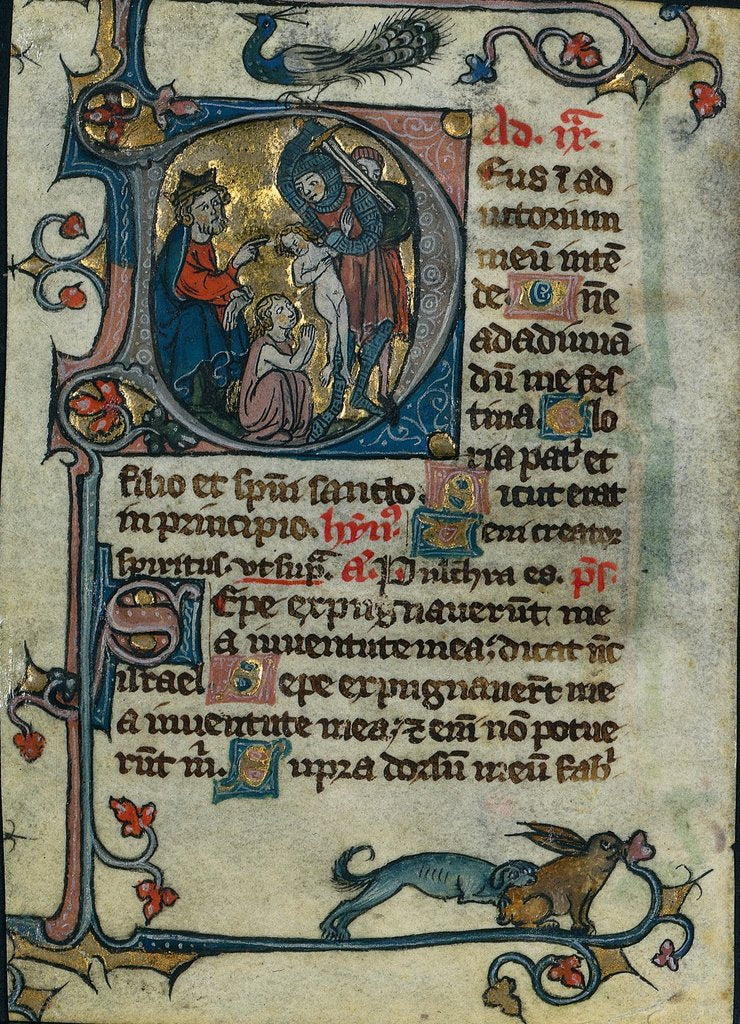 Ad. ix.
Eus ī ad
iutorium
meū inten
de Dñe
ad adiuuā
dū me fes
tina. Glo
ria pat' et
filio et spūi sancto. Sicut erat
in principio. hym' Ueni creator
spiritus. ut sup̄. A. Pulchra es. p̄s.
Sepe expugnauerūt me
a iuuentute mea: dicat nūc
israel Sepe expugnauer̄t me
a iuuentute mea: ⁊ em̄ nō potue
rūt m̄. Supra dorsū meū fab'